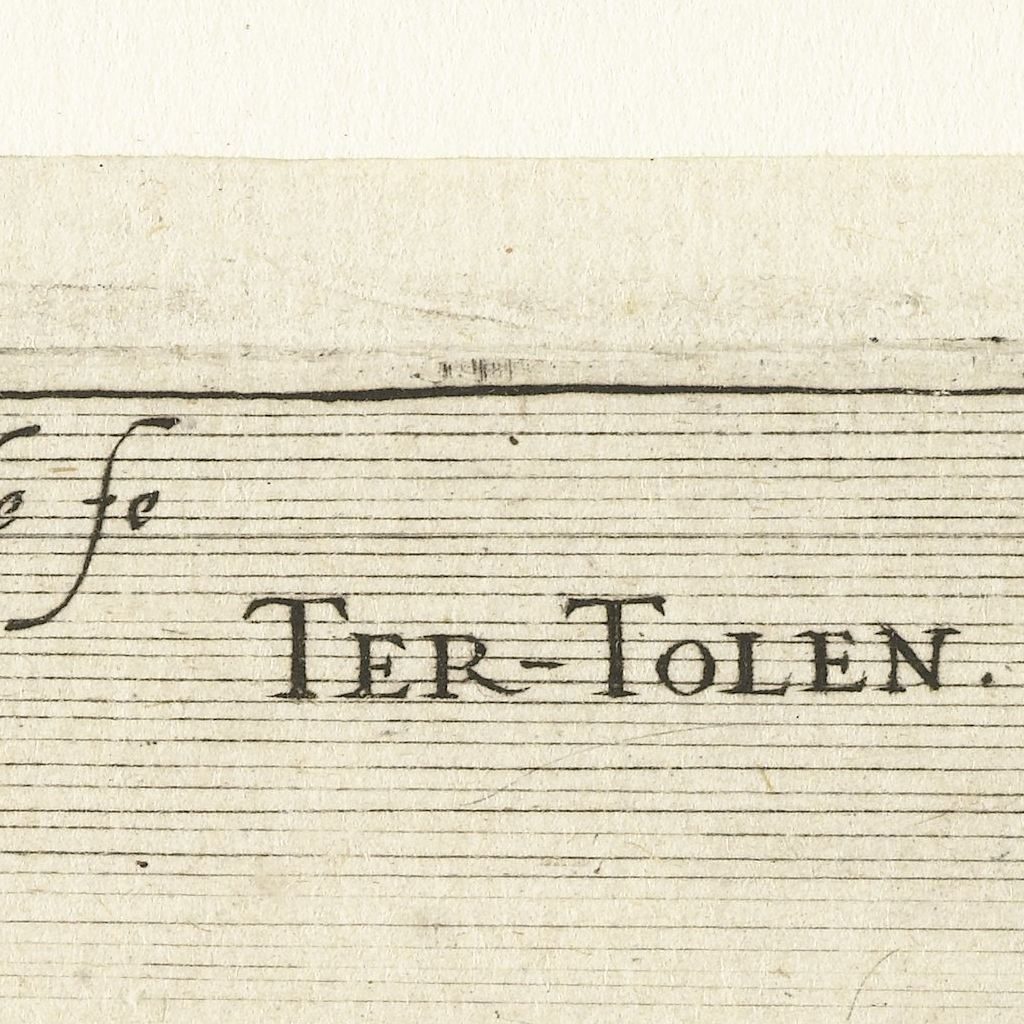 fe
TER-TOLEN.